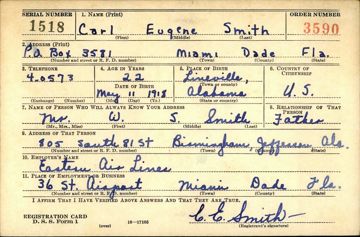 SERIAL NUMBER 1. NAME (Print) ORDER NUMBER
1518 Carl Eugene Smith 3590
(First) (Middle) (Last)
2. ADDRESS (Print)
P.O. Box 3581 Miami Dade Fla.
(Number and street or R. F. D. number) (Town) (County) (State)
3. TELEPHONE 4. AGE IN YEARS 5. PLACE OF BIRTH 6. COUNTRY OF CITIZENSHIP
4.0573 22 Lineville,
DATE OF BIRTH (Town or county)
May 11 1918 Alabama U.S.
(Exchange) (Number) (Mo.) (Day) (Yr.) (State or country)
7. NAME OF PERSON WHO WILL ALWAYS KNOW YOUR ADDRESS 8. RELATIONSHIP OF THAT PERSON
Mr. W. S. Smith Father
(Mr., Mrs., Miss) (First) (Middle) (Last)
9. ADDRESS OF THAT PERSON
805 South 81 St Birmingham, Jefferson Ala.
(Number and street or R. F. D. number) (Town) (County) (State)
10. EMPLOYER'S NAME
Eastern Air Lines
11. PLACE OF EMPLOYMENT OR BUSINESS
36 St. Airport Miami Dade Fla.
(Number and street or R. F. D. number) (Town) (County) (State)
I AFFIRM THAT I HAVE VERIFIED ABOVE ANSWERS AND THAT THEY ARE TRUE.
REGISTRATION CARD
D. S. S. Form 1 (over) C.E. Smith
(Registrant's signature)